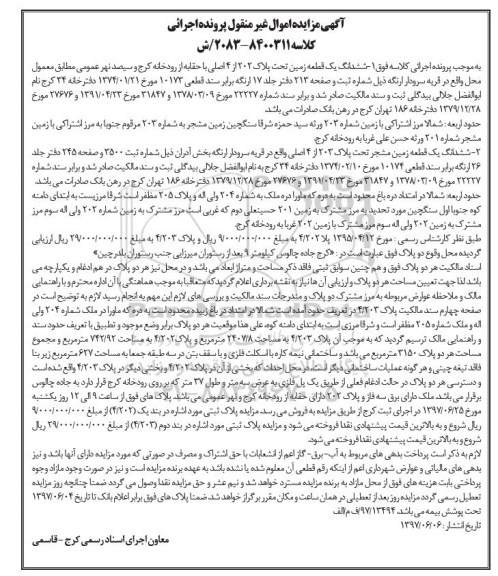 آگهی مزایده اموال غیر منقول پرونده اجرائی
کلاسه ۸۴۰۰۳۱۱-۲۰۸۳/ش
به موجب پرونده اجرائی کلاسه فوق۱-ششدانگ یک قطعه زمین تحت پلاک ۲۰۲ از ۴ اصلی با حقابه از رودخانه کرج و سیصد نهر عمومی مطابق معمول
محل واقع در قریه سرودار ارنگه ذیل شماره ثبت و صفحه ۲۱۳ دفتر جلد ۱۷ ارنگه برابر سند قطعی ۱۰۱۷۳ مورخ ۱۳۷۴/۰۱/۲۱ دفترخانه ۳۴ کرج نام
ابوالفضل جلالی بیدگلی ثبت و سند مالکیت صادر شد و برابر سند شماره ۲۲۲۲۷ مورخ ۱۳۷۸/۰۳/۰۹ و ۳۱۸۴۷ مورخ ۱۳۹۱/۰۴/۲۳ و ۲۷۶۷۶ مورخ
۱۳۷۹/۱۲/۲۸ دفترخانه ۱۸۶ تهران کرج در رهن بانک صادرات می باشد.
حدود اربعه : شمالا مرز اشتراکی با زمین شماره ۲۰۳ ورثه سید حمزه شرقا سنگچین زمین مشجر به شماره ۲۰۳ مرقوم جنوبا به مرز اشتراکی با زمین
مشجر شماره ۲۰۱ ورثه حسن علی غربا به رودخانه کرج.
۲-ششدانگ یک قطعه زمین مشجر تحت پلاک ۲۰۳ از ۴ اصلی واقع در قریه سرودار ارنگه بخش آدران ذیل شماره ثبت ۳۵۰۰ و صفحه ۲۴۵ دفتر جلد
۲۶ ارنگه برابر سند قطعی ۱۰۱۷۴ مورخ ۱۳۷۴/۰۲/۱۰ دفترخانه ۳۴ کرج به نام ابوالفضل جلالی بیدگلی ثبت و سند مالکیت صادر شد و برابر سند شماره
۲۲۲۲۷ مورخ ۱۳۷۸/۰۳/۰۹ و ۳۱۸۴۷ مورخ ۱۳۹۱/۰۲/۲۳ و ۲۷۶۷۶ مورخ ۱۳۷۹/۱۲/۲۸ دفترخانه ۱۸۶ تهران کرج در رهن بانک صادرات می باشد.
حدود اربعه شمالا در امتداد دره باغ محدود است به دره که ماورا دره ملک به شماره ۲۰۴ ولی اله و پلاک ۲۰۵ مظفر است شرقا مرزیست به ابتدای دامنه
کوه جنوبا اول سنگچین مورد تحدید به مرز مشترک به زمین ۲۰۱ حسینعلی دوم که غربی است مرز مشترک به زمین شماره ۲۰۲ ولی اله سوم مرز
مشترک به زمین ۲۰۲ ولی اله سوم مرز مشترک با زمین ۲۰۲ غربا به رودخانه کرج.
طبق نظر کارشناس رسمی : مورخ ۱۳۹۵/۰۴/۱۲ پلا ۴/۲۰۲ به مبلغ ۹/۰۰۰/۰۰۰/۰۰۰ ریال و پلاک ۴/۲۰۳ به مبلغ ۲۹/۰۰۰/۰۰۰/۰۰۰ ریال ارزیابی
گردیده محل وقوع دو پلاک فوق عبارت است در : «کرج جاده چالوس کیلومتر ۹ بعد از رستوران میرزایی جنب رستوران بلدرچین»
اسناد مالکیت هر دو پلاک فوق و هم چنین سوابق ثبتی فاقد ذکر مساحت و متراژ ابعاد می باشد و در محل نیز هر دو پلاک در هم ادغام و یکپارچه می
باشد لذا جهت تعیین مساحت هر دو پلاک و ارزیابی آن ها نیاز به نقشه برداری اعلام گردید که متعاقبا به موجب هماهنگی با آن اداره محترم و با راهنمایی
مالک و ملاحظه عوارض مربوطه به مرز مشترک دو پلاک و مندرجات سند مالکیت و بررسی های لازم این مهم به انجام رسید لازم به توضیح است در
صفحه چهارم سند مالکیت پلاک ۴/۲۰۳ در تعریف حدود آمده است شمالا در امتداد در باغ زبید محدود است به دره که ماورا در ملک شماره ۲۰۴ ولی
اله و ملک شماره ۲۰۵ مظفر است و شرقا مرزی است به ابتدای دامنه کوه، علی هذا موقعیت هر دو پلاک برابر وضع موجود و تطبیق با تعریف حدود سند
و راهنمایی مالک ترسیم گردید که به موجب آن پلاک ۴/۲۰۳ به مساحت ۲۴۰۷/۸ مترمربع و پلاک ۴/۲۰۲ به مساحت ۷۴۲/۹۲ مترمربع و مجموع
مساحت هر دو پلاک ۳۱۵۰ مترمربع می باشد و ساختمانی نیمه کاره با اسکلت فلزی و با سقف بتن در سه طبقه جمعا به مساحت ۶۲۷ مترمربع زیر بنا
فاقد تیغه چینی و هر گونه عملیات ساختمانی دیگر است در محل احداث که بخشی از آن در پلاک ۴/۲۰۲ و بخشی دیگر در پلاک ۴/۲۰۳ واقع شده است
و دسترسی هر دو پلاک در حالت ادغام فعلی از طریق یک پل فلزی به عرض سه متر و طول ۳۷ متر که بر روی رودخانه کرج قرار دارد به جاده چالوس
برقرار می باشد. ملک دارای برق سه فاز و پلاک ۲۰۲ دارای حقابه از رودخانه کرج و نهر عمومی می باشد. پلاک های فوق از ساعت ۹ الی ۱۲ روز یکشنبه
مورخ ۱۳۹۷/۰۶/۲۵ در اجرای ثبت کرج از طریق مزایده به فروش می رسد. مزایده پلاک ثبتی مورد اشاره در بند یک (۴/۲۰۲) از مبلغ ۹/۰۰۰/۰۰۰/۰۰۰
ریال شروع و به بالاترین قیمت پیشنهادی نقدا فروخته می شود و مزایده پلاک ثبتی مورد اشاره در بند دوم (۴/۲۰۳) از مبلغ ۲۹/۰۰۰/۰۰۰/۰۰۰ ریال
شروع و به بالاترین قیمت پیشنهادی نقدا فروخته می شود.
لازم به ذکر است پرداخت بدهی های مربوط به آب-برق-گاز اعم از انشعابات با حق اشتراک و مصرف در صورتی که مورد مزایده دارای آنها باشد و نیز
بدهی های مالیاتی و عوارض شهرداری اعم از اینکه رقم قطعی آن معلوم شده یا نشده باشد به عهده برنده مزایده است و نیز در صورت وجود مازاد وجوه
پرداختی بابت هزینه های فوق از محل مازاد به برنده مزایده مسترد خواهد شد و نیم عشر و حق مزایده نقدا وصول می گردد ضمنا چنانچه روز مزایده
تعطیل رسمی گردد مزایده روز بعد از تعطیلی در همان ساعت و مکان مقرر برگزار خواهد شد. ضمنا پلاک های فوق برابر اعلام بانک تا تاریخ ۱۳۹۷/۰۶/۰۴
تحت پوشش بیمه می باشد. ۹۷/۱۳۴۹۴/ف م/الف
تاریخ انتشار : ۱۳۹۷/۰۶/۰۶
معاون اجرای اسناد رسمی کرج - قاسمی